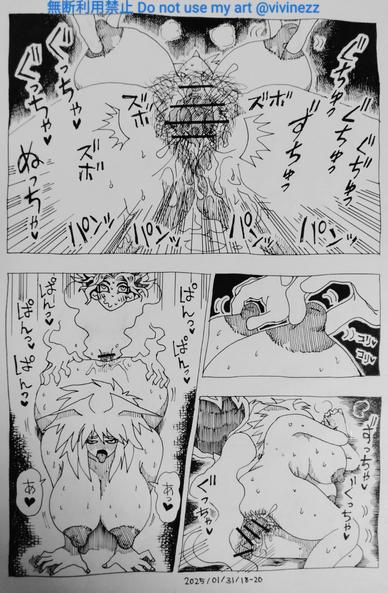 無断利用禁止 Do not use my art @vivinezz
ぐっちゅっ
ぐちゅっ
すちゅっ
ズボ
ズボ
ズボ
ズボ
ぐっちゃ♥
ぐっちゃ♥
ぬっちゃ♥
パンッ
パンッ
パンッ
パンッ
コリ♥
コリ♥
ぱんっ♥
ぱんっ♥
ぱんっ♥
ぱんっ♥
ぱんっ♥
ぱんっ♥
あ♥
あ♥
ずっちゃ♥
ぐっちゃ♥
2025/01/31/18-20